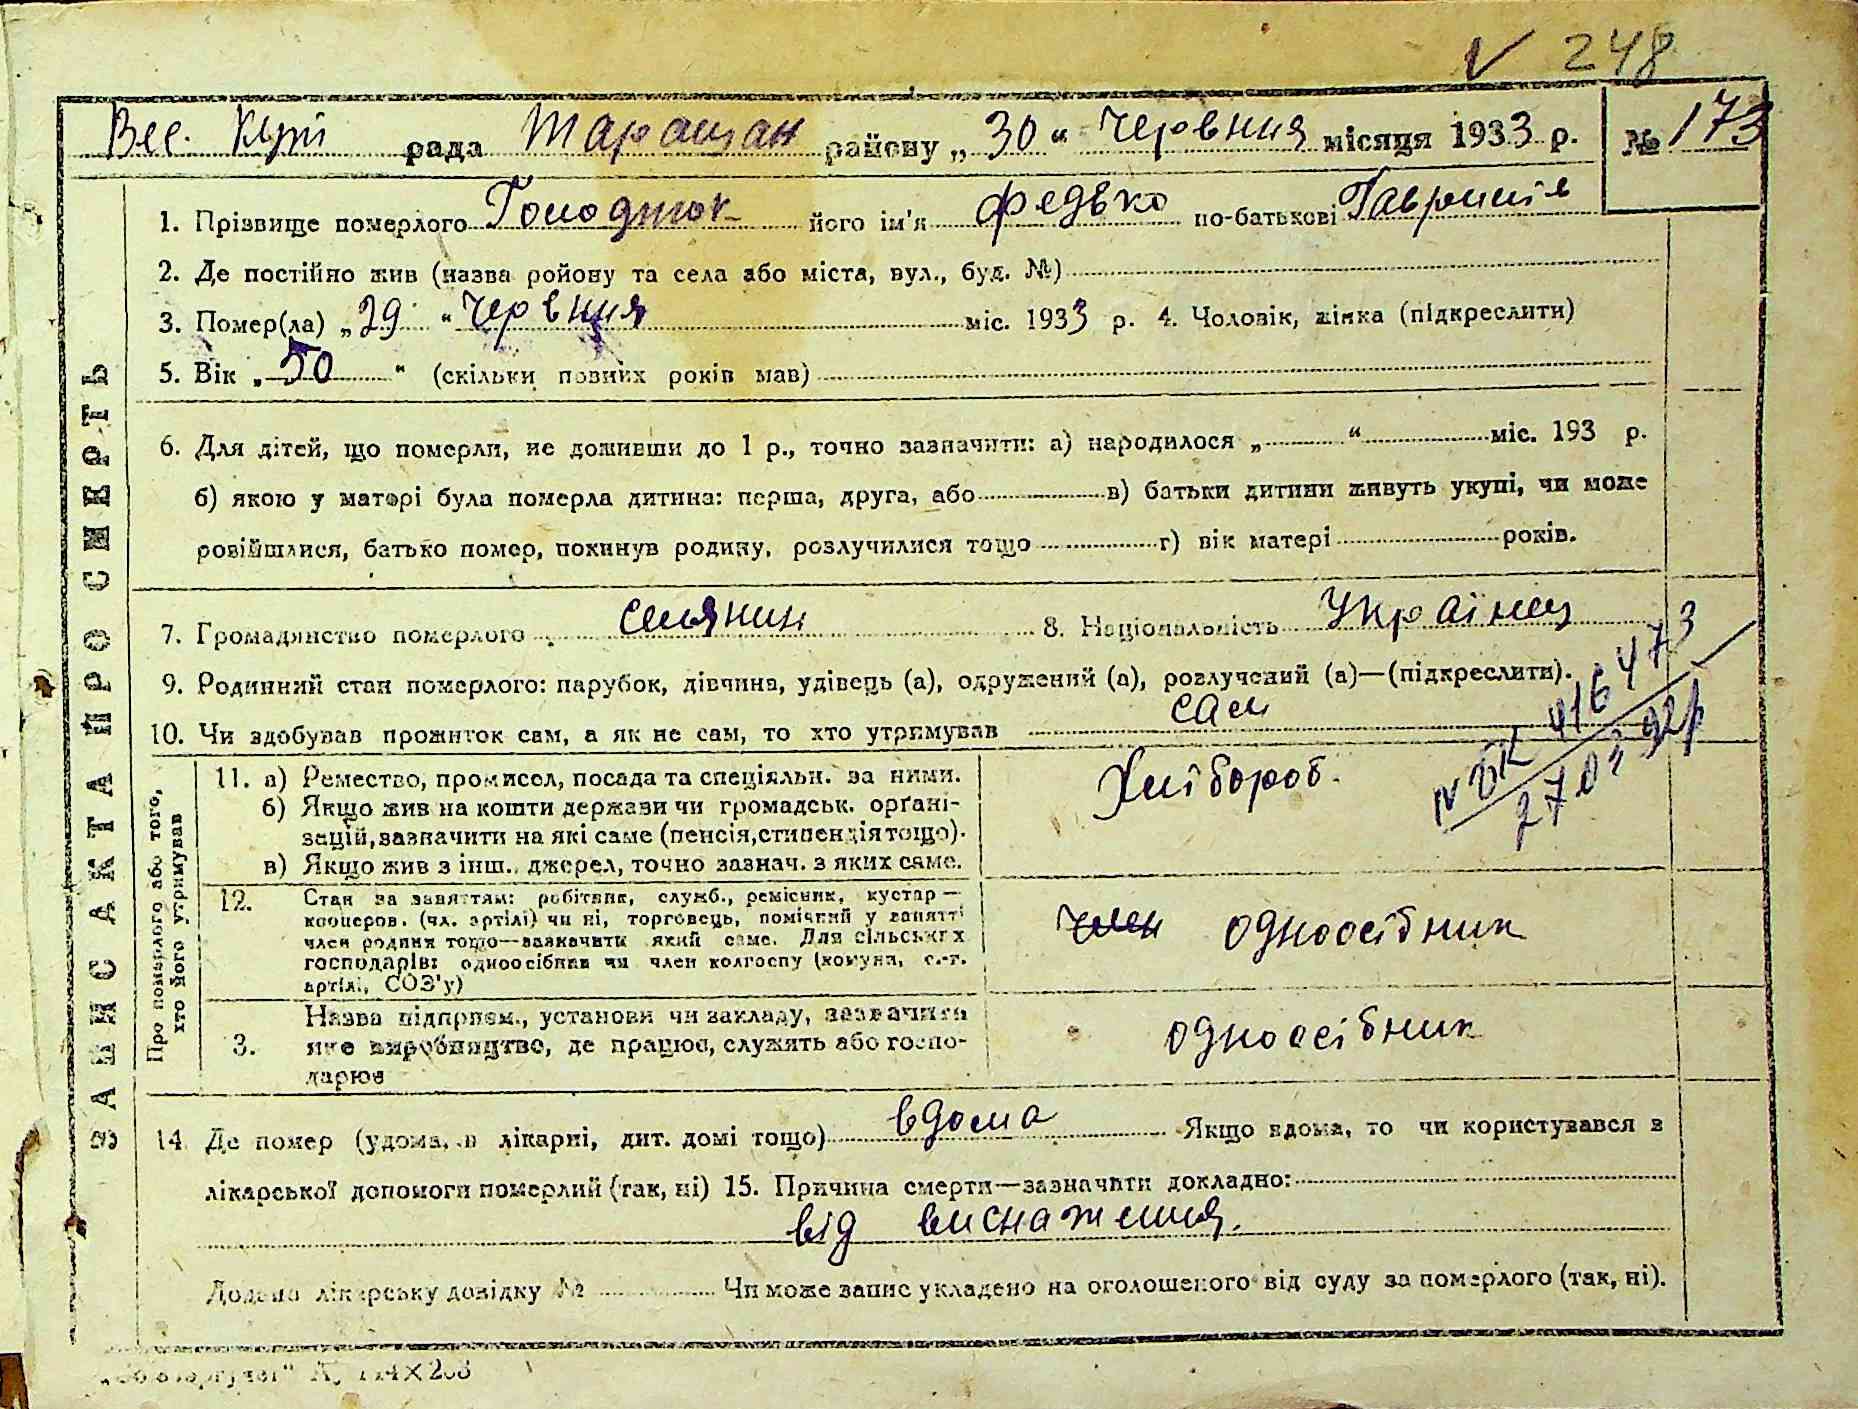 V 248
Вес. Кут рада Таращан району „30“ Червния місяця 1933 р. № 173
1. Прізвище померлого Голоднюк його ім'я Федько по-батькові Гаврилів
2. Де постійно жив (назва ройону та села або міста, вул., буд. №)
3. Помер(ла) „29“ Червния міс. 1933 р. 4. Чоловік, жінка (підкреслити)
5. Вік „50“ (скільки повних років мав)
6. Для дітей, що померли, не доживши до 1 р., точно зазначити: а) народилося „ “ міс. 193 р.
б) якою у матері була померла дитина: перша, друга, або в) батьки дитини живуть укупі, чи може
розійшлися, батько помер, покинув родину, розлучилися тощо г) вік матері років.
7. Громадянство померлого селянин 8. Національність Українец
9. Родинний стан померлого: парубок, дівчина, удівець (а), одружений (а), розлучений (а)—(підкреслити).
10. Чи здобував прожиток сам, а як не сам, то хто утримував сам
N БК 416473
27 04 92р
Про померлого або того, хто його утримував
11. а) Ремество, промисел, посада та спеціяльн. за ними. Хлібороб.
б) Якщо жив на кошти держави чи громадськ. органі-
зацій, зазначити на які саме (пенсія, стипендія тощо).
в) Якщо жив з інш. джерел, точно зазнач. з яких саме.
12. Стан за заняттям: робітник, служб., ремісник, кустар—
кооперов. (чл. артілі) чи ні, торговець, помічний у занятті
член родини тощо—зазначити який саме. Для сільських
господарів: одноосібник чи член колгоспу (комуна, с.-г.
артілі, СОЗ'у)
член одноосібник
3. Назва підприєм., установи чи закладу, зазначити
яке виробництво, де працює, служить або госпо-
дарює
одноосібник
14. Де помер (удома, в лікарні, дит. домі тощо) вдома Якщо вдома, то чи користувався з
лікарської допомоги померлий (так, ні) 15. Причина смерти—зазначити докладно:
від виснаження.
Додано лікарську довідку № Чи може запис укладено на оголошеного від суду за померлого (так, ні).
ЗАПИС АКТА ПРО СМЕРТЬ